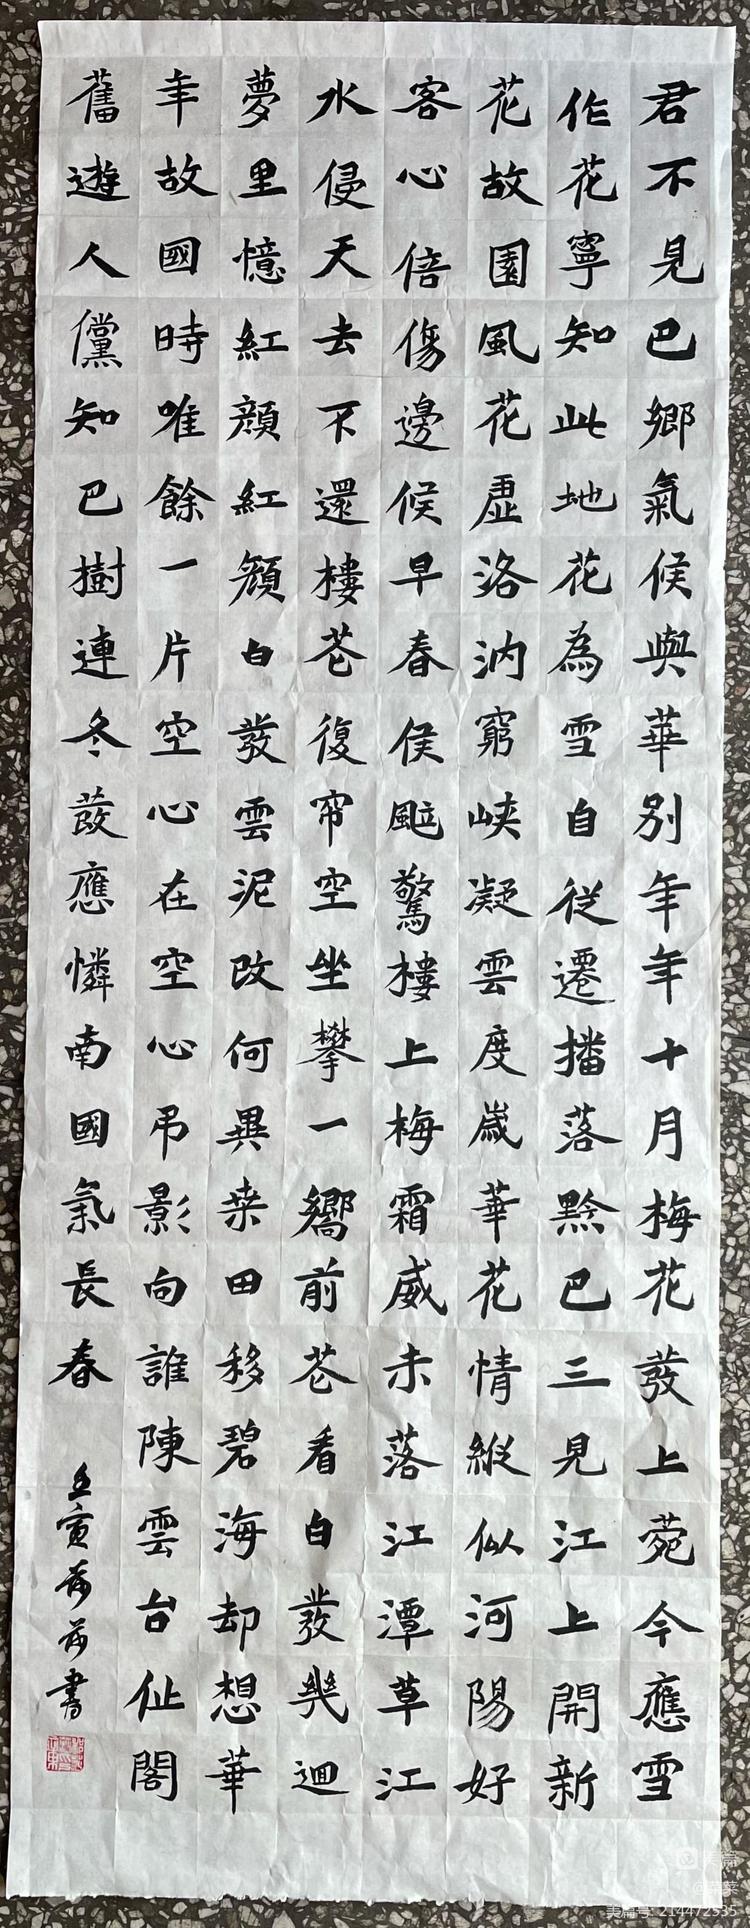 君不見巴鄉氣候與華別年年十月梅花發上菀今應雪
作花寧知此地花為雪自從遷播落黔巴三見江上開新
花故園風花虛洛汭窮峽凝雲度歲華花情縱似河陽好
客心倍傷邊候早春侯颭驚樓上梅霜威未落江潭草江
水侵天去不還樓花復帘空坐攀一嚮前花看白發幾迴
夢里憶紅顏紅顏白發雲泥改何異桒田移碧海却想華
年故國時唯餘一片空心在空心弔影向誰陳雲台仙閣
舊遊人儻知巴樹連冬發應憐南國氣長春
壬寅
書
美篇
美篇号: 214472535